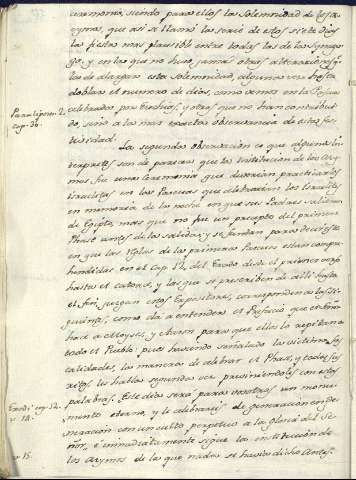 ceremonia, siendo para ellos la Solemnidad de los
Azymos, que asi se llamó la serie de estos siete dias
la fiesta mas plausible entre todas las de la Synago-
ga y en las que no hubo jamas otras alteraciones
las de alargar esta Solemnidad, algunas veces hasta
doblar el numero de dias, como vemos en la Pascua
Paralipom. 2. celebrada por Ezechias, y otras que no han contribui-
cap. 30. do, sino à la mas exacta observancia de esta fes-
tividad.
La segunda observacion es que algunos In-
terpretes son de parecer que la Institucion de los Azy-
mos fue una ceremonia que deverian practicar los
Israelitas en las Pascuas que celebrarian los Israelitas
en memoria de la noche en que sus Padres salieron
de Egipto, mas que no fue un precepto del primer
Phase antes de la salida; y se fundan para decir esto
en que las Reglas de las primeras Pascuas estan compre-
hendidas en el cap. 12. del Exodo desde el primer verso
hasta el catorce, y las que se prescriben de alli hasta
el fin, juzgan estos Expositores, corresponden a las si-
guientes, como da à entender el Prefacio que el Señor
hace a Moyses, y Aaron para que ellos lo repitieran a
todo el Pueblo: pues haviendo señalado la victima, sus
calidades, las maneras de celebrar el Phase, y todos los
ritos les habla segunda vez previniendoles con estas
palabras. Este dia será para vosotros un monu-
Exodi cap. 12. mento eterno, y le celebrareis de generacion en ge-
v. 14. neracion con un culto perpetuo a la gloria del Se-
ñor, è inmediatamente sigue la institucion de
v. 15. los Azymos de la que nada se havia dicho antes.